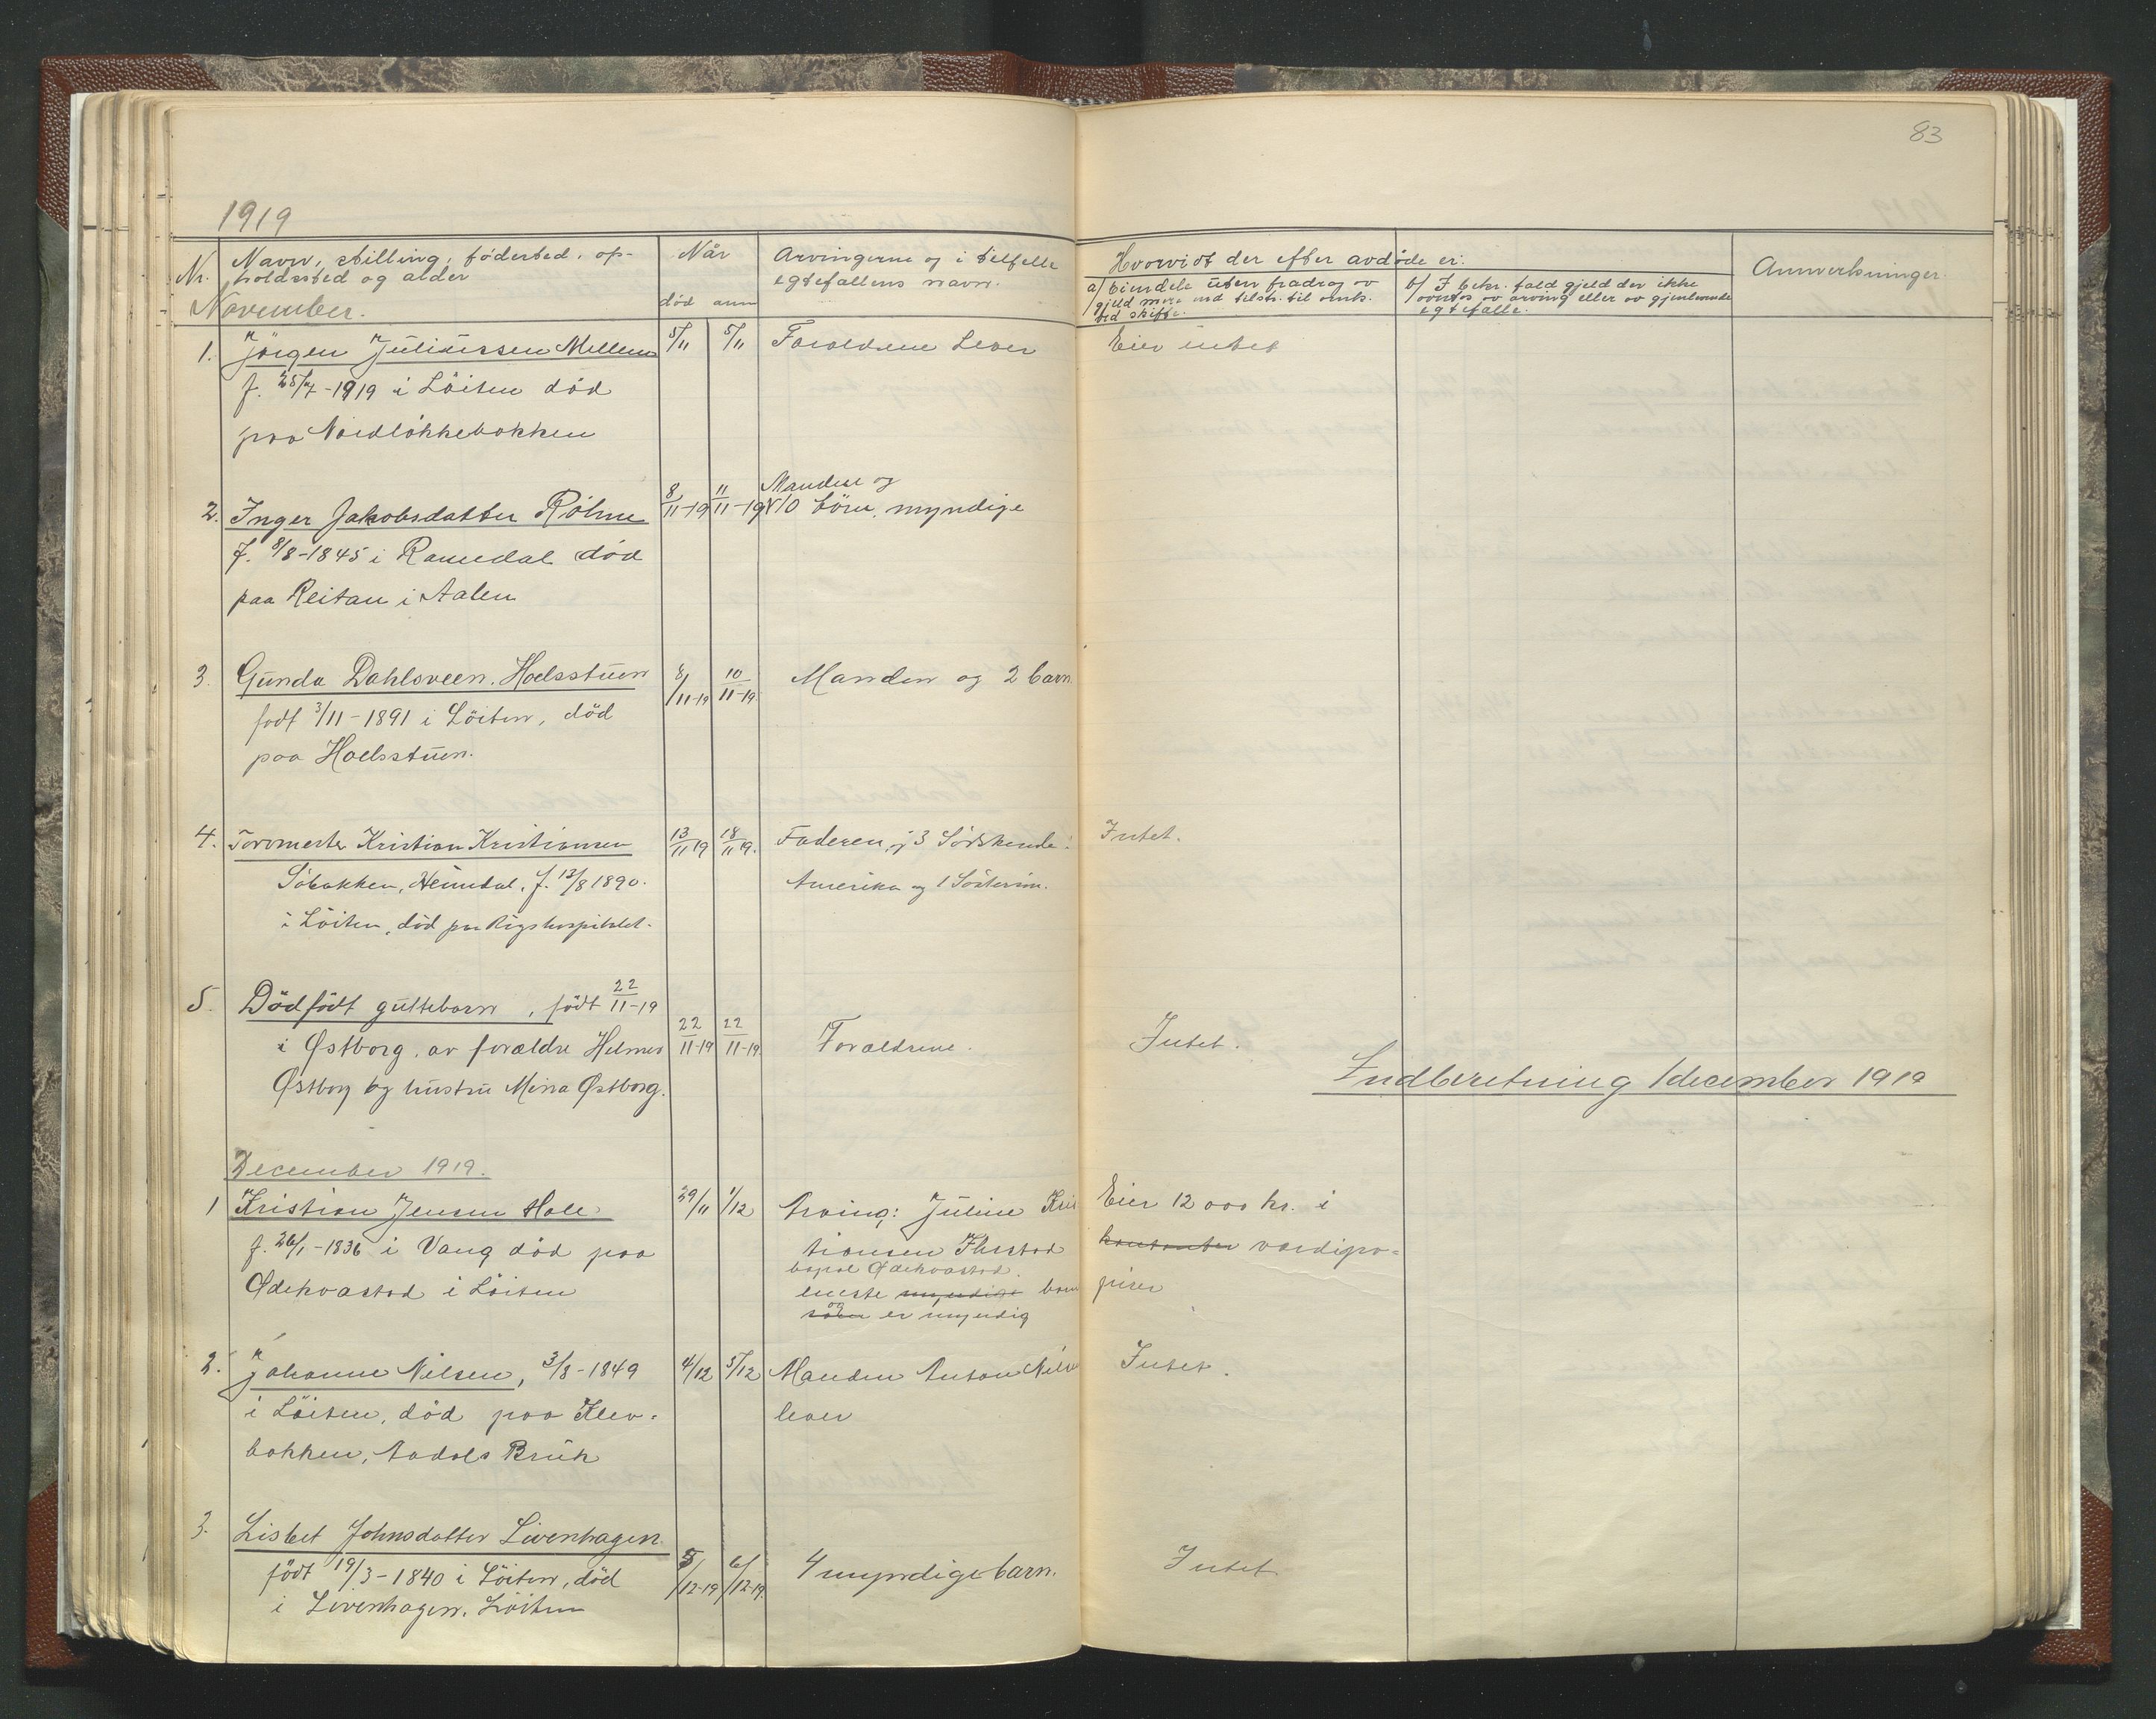 83
1919
Nr. Navn, stilling, födested, op-
holdssted og alder
Når
död anm
Arvingerne og i tilfelle
egtefællens navn.
Hvorvidt der efter avdøde er:
a/ Eiendele uten fradrag av
gjeld mere end tilstr. til omk.
ved skifte.
b/ I bekr. fald gjeld der ikke
overtas av arving eller av gjenlevende
egtefælle.
Anmerkninger.
November.
1. Jörgen Juliussen Mellem 5/11 5/11 Foreldrene Lever Eier intet
f. 25/7-1919 i Löiten död
paa Nordlökkebakken
2. Inger Jakobsdatter Röhne 8/11-19 11/11-19 Manden og
10 börn, myndige
f. 8/8-1845 i Romedal död
paa Reitan i Aalen
3. Gunda Dahlsveen, Hoelsstuen 8/11-19 10/11-19. Manden og 2 barn.
født 3/11-1891 i Löiten, död
paa Hoelsstuen.
4. Torvmester Kristian Kristiansen 13/11 19 18/11 19. Faderen, 3 Södskende i Intet.
Söbakken, Heimdal, f. 13/8 1890. Amerika og 1 Söster
i Löiten, död paa Rigshospitalet.
5. Dödfödt guttebarn, födt 22/11-19
i Østborg, av forældre Helmer 22/11-19 22/11-19. Forældrene. Intet.
Østborg og hustru Mina Østborg.
Indberetning 1 december 1919
December 1919.
1 Kristian Jensen Hole 29/11 1/12 Arving: Juline Kris Eier 12000 kr. i
f. 26/1-1836 i Vang död paa tiansen kontanter værdipa-
Ødekvastad i Löiten bopæl Ødekvastad.
eneste myndige barn pirer
som og er myndig
2. Johanne Nilsen, 3/8-1849 4/12 5/12 Manden Anton Nils Intet.
i Löiten, död paa Klev- lever
bakken, Aadals Bruk
3. Lisbet Johnsdatter Livenhagen.
födt 19/3-1840 i Löiten, död 5/12-19 6/12-19. 4 myndige barn. Intet
i Livenhagen, Löiten